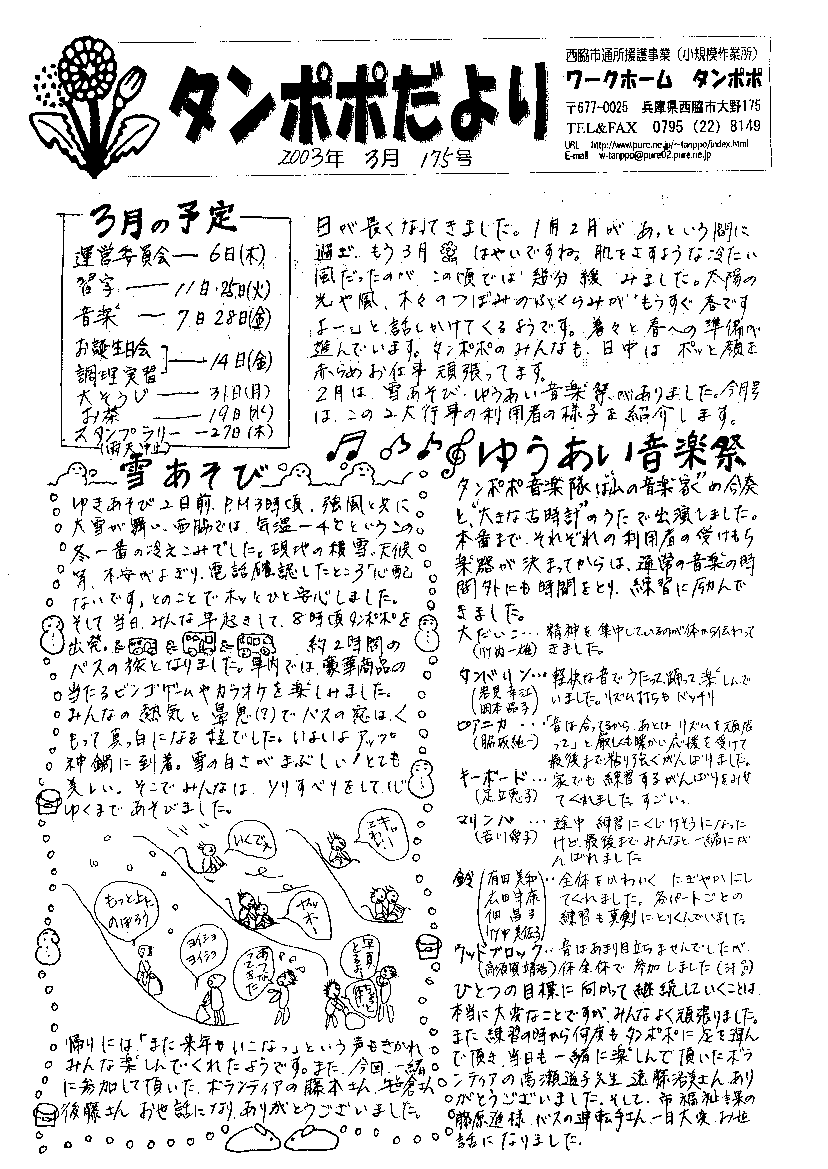 タンポポだより
2003年 3月 175号
西脇市通所援護事業（小規模作業所）
ワークホーム タンポポ
〒677-0025 兵庫県西脇市大野175
TEL&FAX 0795（22）8149
URL http://www.pure.ne.jp/~tanppo/index.html
E-mail w-tanppo@pure02.pure.ne.jp
3月の予定
運営委員会― 6日(木)
習字 ― 11日・25日(火)
音楽 ― 7日 28日(金)
お誕生日会
調理実習 ― 14日(金)
大そうじ ― 31日(月)
お茶 ― 19日(水)
スタンプラリー ―27日(木)
(雨天中止)
日が長くなってきました。1月2月が あっという間に
過ぎ、もう3月 はやいですね。肌をさすような冷たい
風だったのが、この頃では 随分 緩 みました。太陽の
光や風、木々のつぼみのふくらみが"もうすぐ春です
よー"と話しかけてくるようです。着々と春への準備が
進んでいます。タンポポのみんなも、日中は ポッと顔を
赤らめお仕事 頑張ってます。
2月は、雪あそび・ゆうあい音楽祭がありました。今月号
は、この2大行事の利用者の様子を紹介します。
雪あそび
ゆきあそび2日前、P.M3時頃、強風と共に
大雪が舞い、西脇では、気温-4℃というこの
冬一番の冷えこみでした。現地の積雪、天候
等、不安がよぎり、電話確認したところ「心配
ないです」とのことでホッとひと安心しました。
そして当日、みんな早起きして、8時頃タンポポを
出発。 & & 約2時間の
バスの旅となりました。車内では、豪華商品の
当たるビンゴゲームやカラオケを楽しみました。
みんなの熱気と鼻息(?)でバスの窓は、く
もって真っ白になる程でした。いよいよアップ
神鍋に到着。雪の白さがまぶしい!とても
美しい。そこでみんなは、ソリすべりをして、心
ゆくまであそびました。
いくでぇ
ヤッホー
もっと上まで
のぼろう
ヨイショ
ヨイショ
帰りには「また来年もいこなっ」という声もきかれ
みんな楽しんでくれたようです。また、今回、一緒
に参加して頂いた、ボランティアの藤本さん、笹倉さん
後藤さん お世話になり、ありがとうございました。
ゆうあい音楽祭
タンポポ音楽隊は"山の音楽家"の合奏
と、"大きな古時計"のうたで出演しました。
本番まで、それぞれの利用者の受けもち
楽器が決まってからは、通常の音楽の時
間外にも時間をとり、練習に励んで
きました。
大だいこ… 精神を集中しているのが体から伝わって
(竹内一雄) きました。
タンバリン… 軽快な音でうたって踊って楽しんで
いました。リズム打ちもバッチリ
ピアニカ…「音は合ってるから、あとはリズムを頑張
って」と厳しくも暖かい応援を受けて
最後まで粘り強くがんばりました。
キーボード… 家でも練習するがんばりをみせ
てくれました すごい。
マリンバ … 途中 練習にくじけそうになった
けど、最後までみんなと一緒にが
んばれました
鈴 … 全体をかわいく にぎやかにし
てくれました。各パートごとの
練習も真剣にとりくんでいました
ウッドブロック… 音はあまり目立ちませんでしたが、
体全体で参加しました
ひとつの目標に向かって継続していくことは、
本当に大変なことですが、みんなよく頑張りました。
また練習の時から何度もタンポポに足を運ん
で頂き、当日も一緒に楽しんで頂いたボラ
ンティアの高瀬道子先生、遠藤浩美さんあり
がとうございました。そして、市福祉課の
藤原進様、バスの運転手さん、一日大変お世
話になりました。